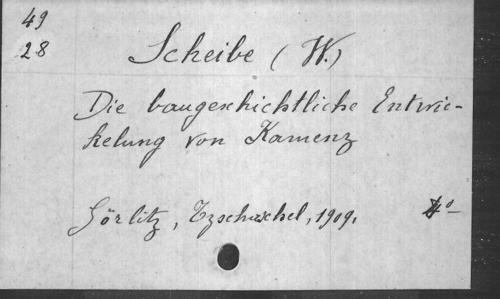 49
28
Scheibe (W.)
Die baugeschichtliche Entwic-
kelung von Kamenz
Görlitz, Tzschaschel, 1909.
4°